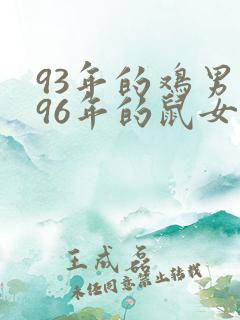 93年的鸡男
96年的鼠女
王成磊
未经同意禁止转载